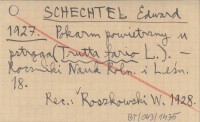 SCHECHTEL Edward
1927. Pokarm powietrzny u
pstrąga (Trutta fario L.). —
Roczniki Nauk Roln. i Leśn.
18.
Rec.: Roszkowski W. 1928.
BT/043/1435